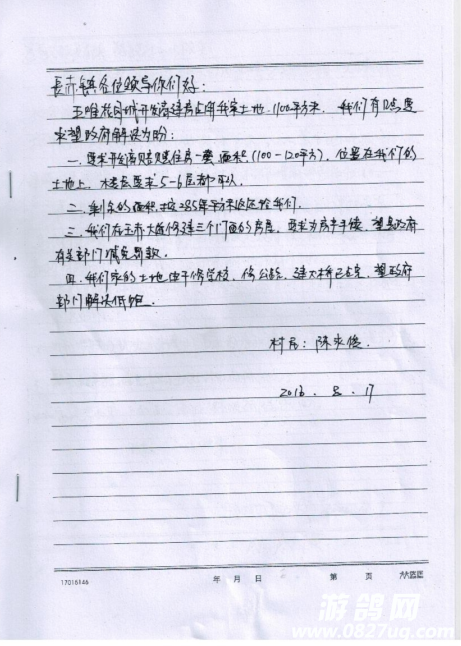 長赤镇各位领导你们好:
王唯在同州开发商建房占用我家土地1100平方米. 我们有以点要
求望政府解决为盼:
一. 要求开发商赔建住房一套面积(100-120平方), 位置在我们的
土地上, 楼层要求5-6层都可以.
二. 剩余的面积按285年平方米返还给我们.
三. 我们在长赤大道修建三个门面的房屋, 要求办房产手续, 望县政府
有关部门减免罚款.
四. 我们家的土地由于修学校, 修公路, 建大桥已占完, 望政府
部门解决低保.
村居: 陈
2016. 8. 17
17016146
年 月 日
第 页
游鸽网
www.0827uq.com